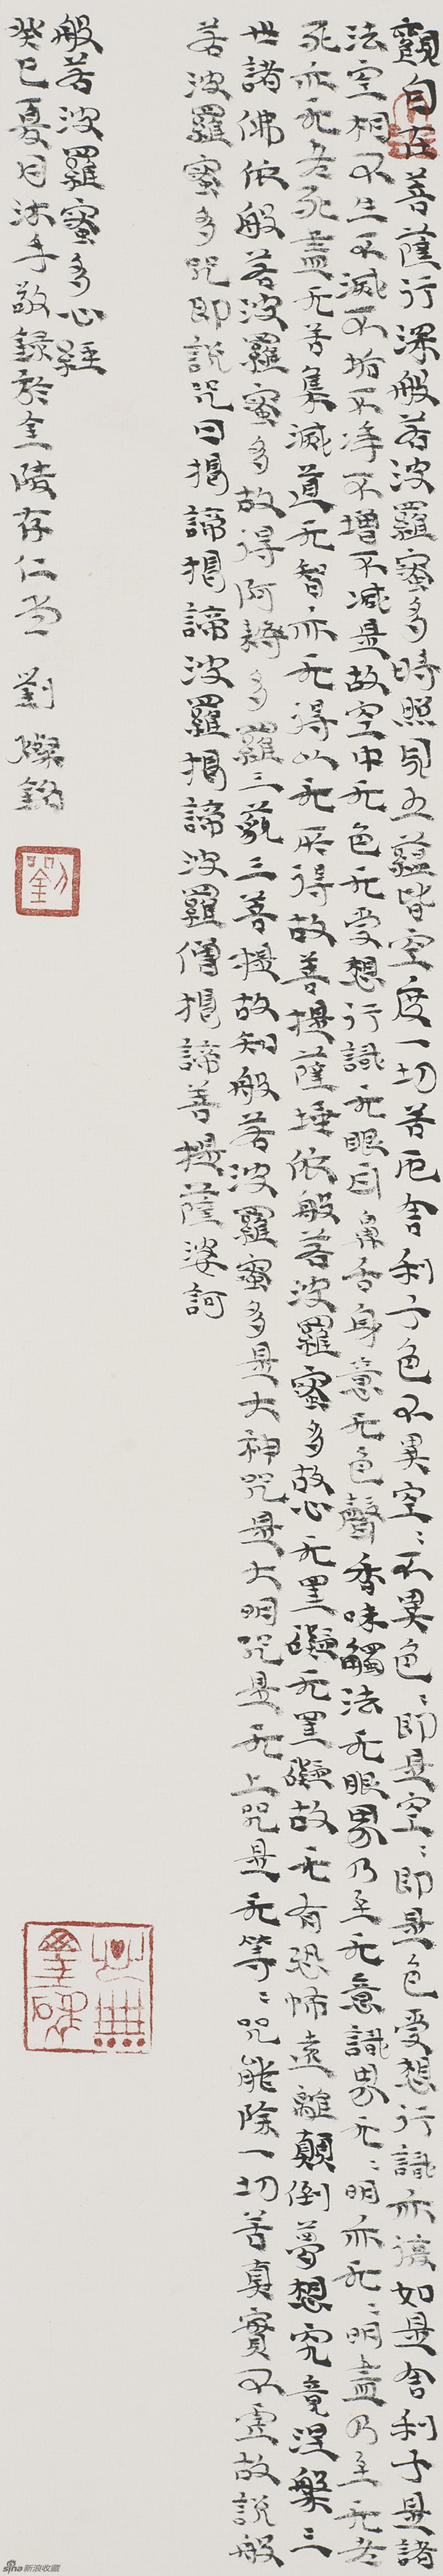 觀自在菩薩行深般若波羅蜜多時照見五蘊皆空度一切苦厄舍利子色不異空〻不異色〻即是空〻即是色受想行識亦復如是舍利子是諸
法空相不生不滅不垢不淨不增不減是故空中无色无受想行識无眼耳鼻舌身意无色聲香味觸法无眼界乃至无意識界无〻明亦无〻明盡乃至无老
死亦无老死盡无苦集滅道无智亦无得以无所得故菩提薩埵依般若波羅蜜多故心无罣礙无罣礙故无有恐怖遠離顛倒夢想究竟涅槃三
世諸佛依般若波羅蜜多故得阿耨多羅三藐三菩提故知般若波羅蜜多是大神咒是大明咒是无上咒是无等〻咒能除一切苦真實不虛故說般
若波羅蜜多咒即說咒曰揭諦揭諦波羅揭諦波羅僧揭諦菩提薩婆訶
般若波羅蜜多心經
癸巳夏月沐手敬錄於金陵存仁堂 劉燦銘
劉
心無罣碍
sina新浪收藏